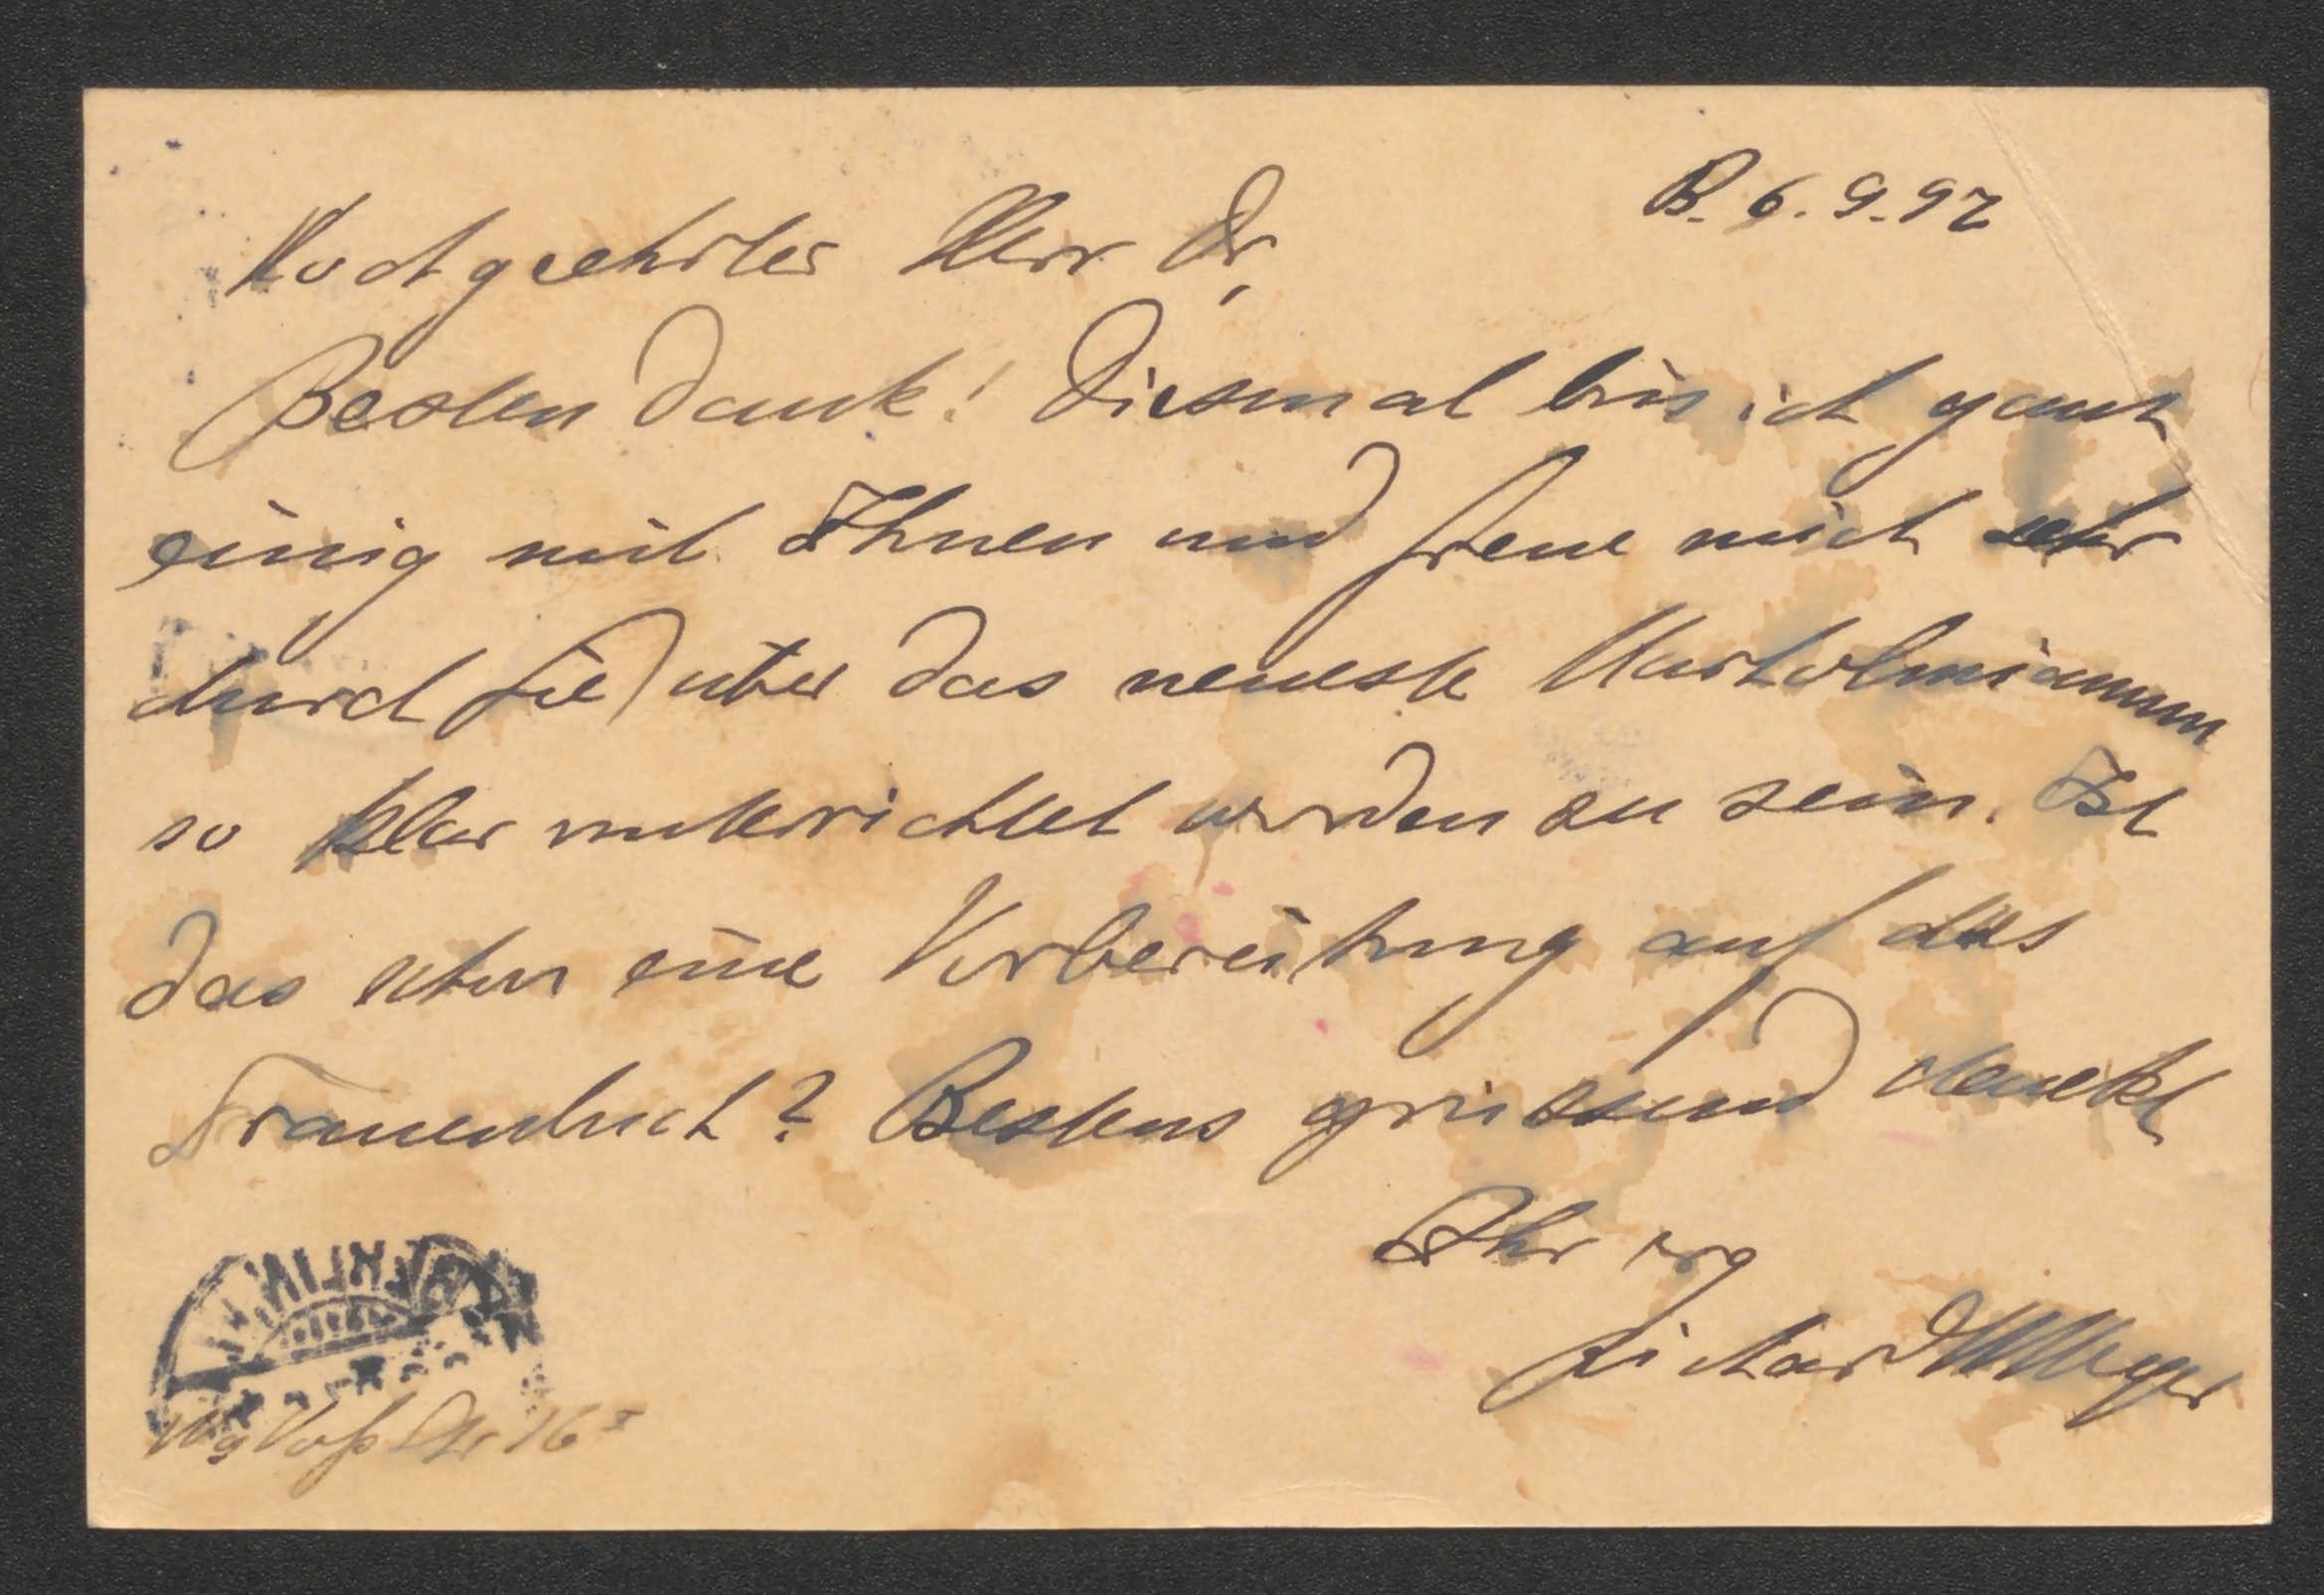 B. 6. 9. 97
Hochgeehrter Herr Dr,
Besten Dank! Diesmal bin ich ganz
einig mit Ihnen und freue mich sehr
durch Sie über das neueste
so klar unterrichtet worden zu sein. Ist
das schon eine Vorbereitung auf das
Frauenbuch? Bestens grüssend dankt
Ihr erg
Richard M Meyer
BERLIN, W
Voß Str 16